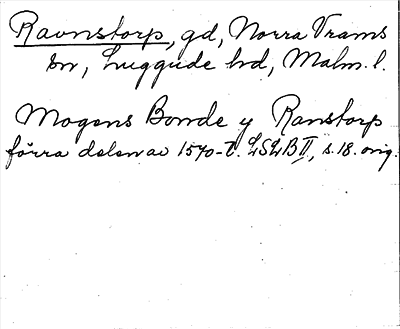 Ravnstorp, gd, Norra Vrams
sn, Luggude hd, Malm. l.
Mogens Bonde y Ranstorp
förra delen av 1570-t. LSLB II, s. 18. orig.